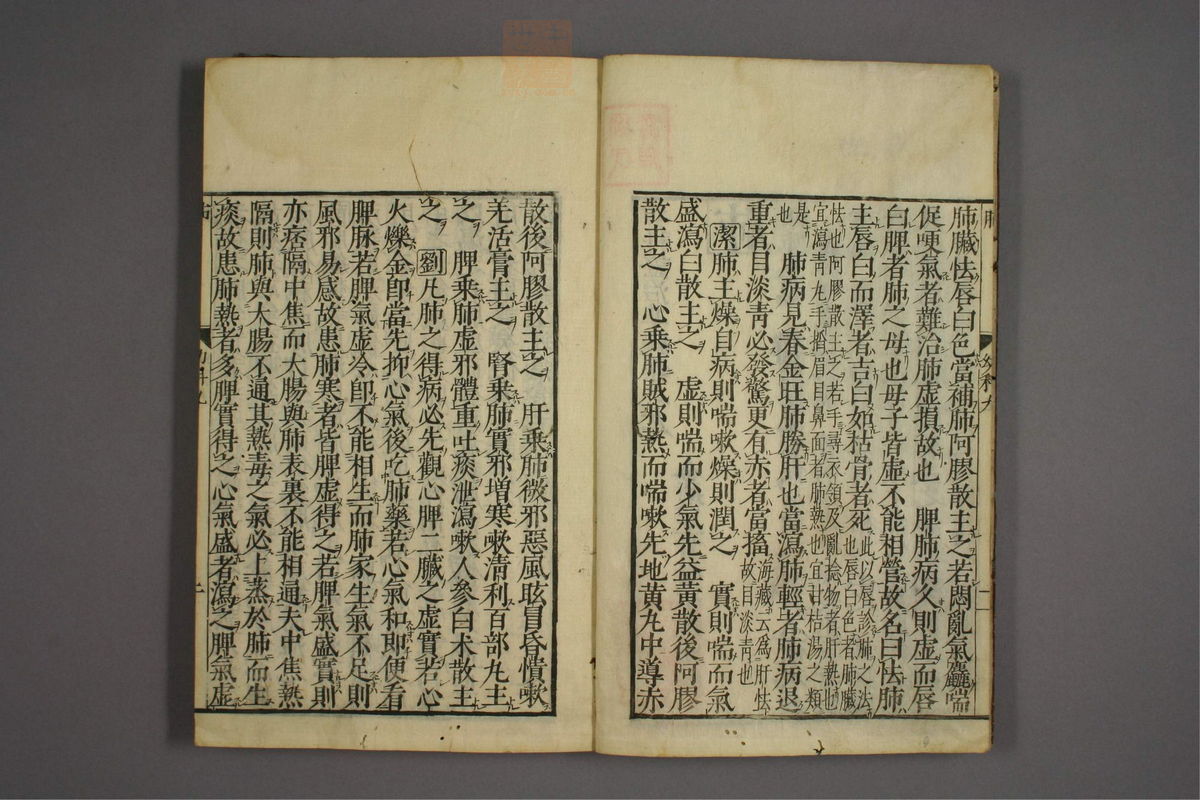 肺臟怯唇白色當補肺阿膠散主之若悶亂氣麤喘
促哽氣者難治肺虛損故也　脾肺病久則虛而唇
白脾者肺之母也母子皆虛不能相營故名曰怯肺
主唇白而澤者吉白如枯骨者死此以唇診肺之法也唇白色者肺臟
怯也阿膠散主之若手尋衣領及亂捻物者肝熱也
宜瀉青丸手掐眉目鼻面者肺熱也宜甘桔湯之類
是也　肺病見春金旺肺勝肝也當瀉肺輕者肺病退
重者目淡青必發驚更有赤者當搐海藏云爲肝怯故目淡青也
潔肺主燥自病則喘嗽燥則潤之　實則喘而氣
盛瀉白散主之　虛則喘而少氣先益黃散後阿膠
散主之　心乘肺賊邪熱而喘嗽先地黄丸中導赤
散後阿膠散主之　肝乘肺微邪惡風眩冒昏憒嗽
羌活膏主之　腎乘肺實邪増寒嗽清利百部丸主
之　脾乘肺虛邪體重吐痰泄瀉嗽人參白朮散主
之　劉凡肺之得病必先觀心脾二臟之虛實若心
火爍金卽當先抑心氣後吃肺藥若心氣和即便看
脾脉若脾氣虛冷卽不能相生而肺家生氣不足則
風邪易感故患肺寒者皆脾虛得之若脾氣盛實則
亦痞隔中焦而大腸與肺表裏不能相通夫中焦熱
隔則肺與大腸不通其熱毒之氣必上蒸於肺而生
痰故患肺熱者多脾實得之心氣盛者瀉之脾氣虛